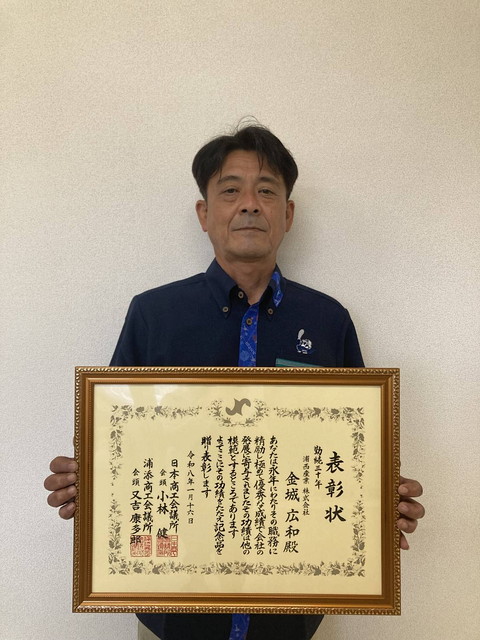 表彰状
勤続三十年
浦西産業 株式会社
金城 広和 殿
あなたは永年にわたりその職務に
精励し極めて優秀な成績で会社の
発展に寄与されましたその功績は他の
模範とするところであります
よってここにその功績をたたえ記念品を
贈り表彰します
令和八年一月十六日
日本商工会議所
会頭 小林 健
浦添商工会議所
会頭 又吉 康多郎